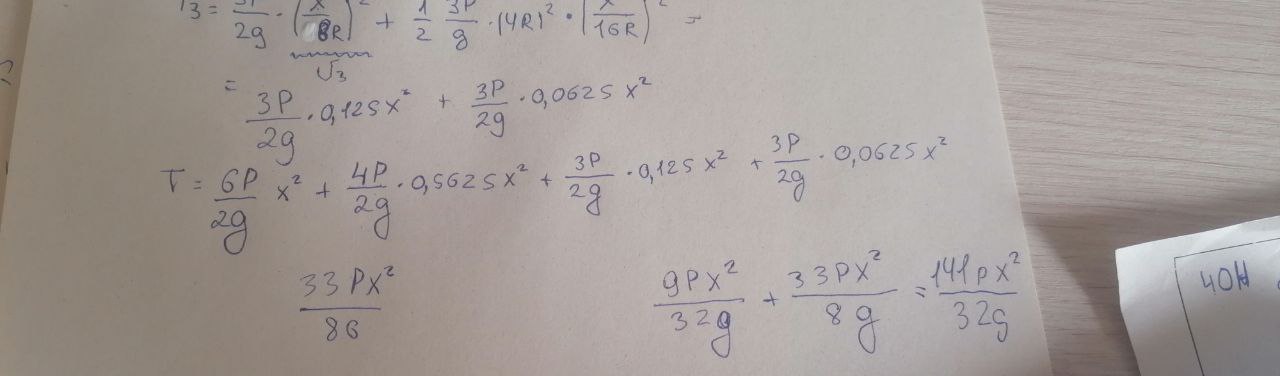 T₃ = 3P/2g · (x/8R)² + 1/2 3P/g · (4R)² · (x/16R)² =
√₃
= 3P/2g · 0,125x² + 3P/2g · 0,0625x²
T = 6P/2g x² + 4P/2g · 0,5625x² + 3P/2g · 0,125x² + 3P/2g · 0,0625x²
33Px²/8G 9Px²/32g + 33Px²/8g = 141px²/32g
40H